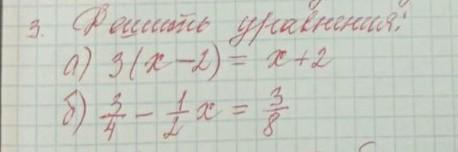 3. Решить уравнения:
а) 3(x-2) = x+2
б) 3/4 - 1/2 x = 3/8